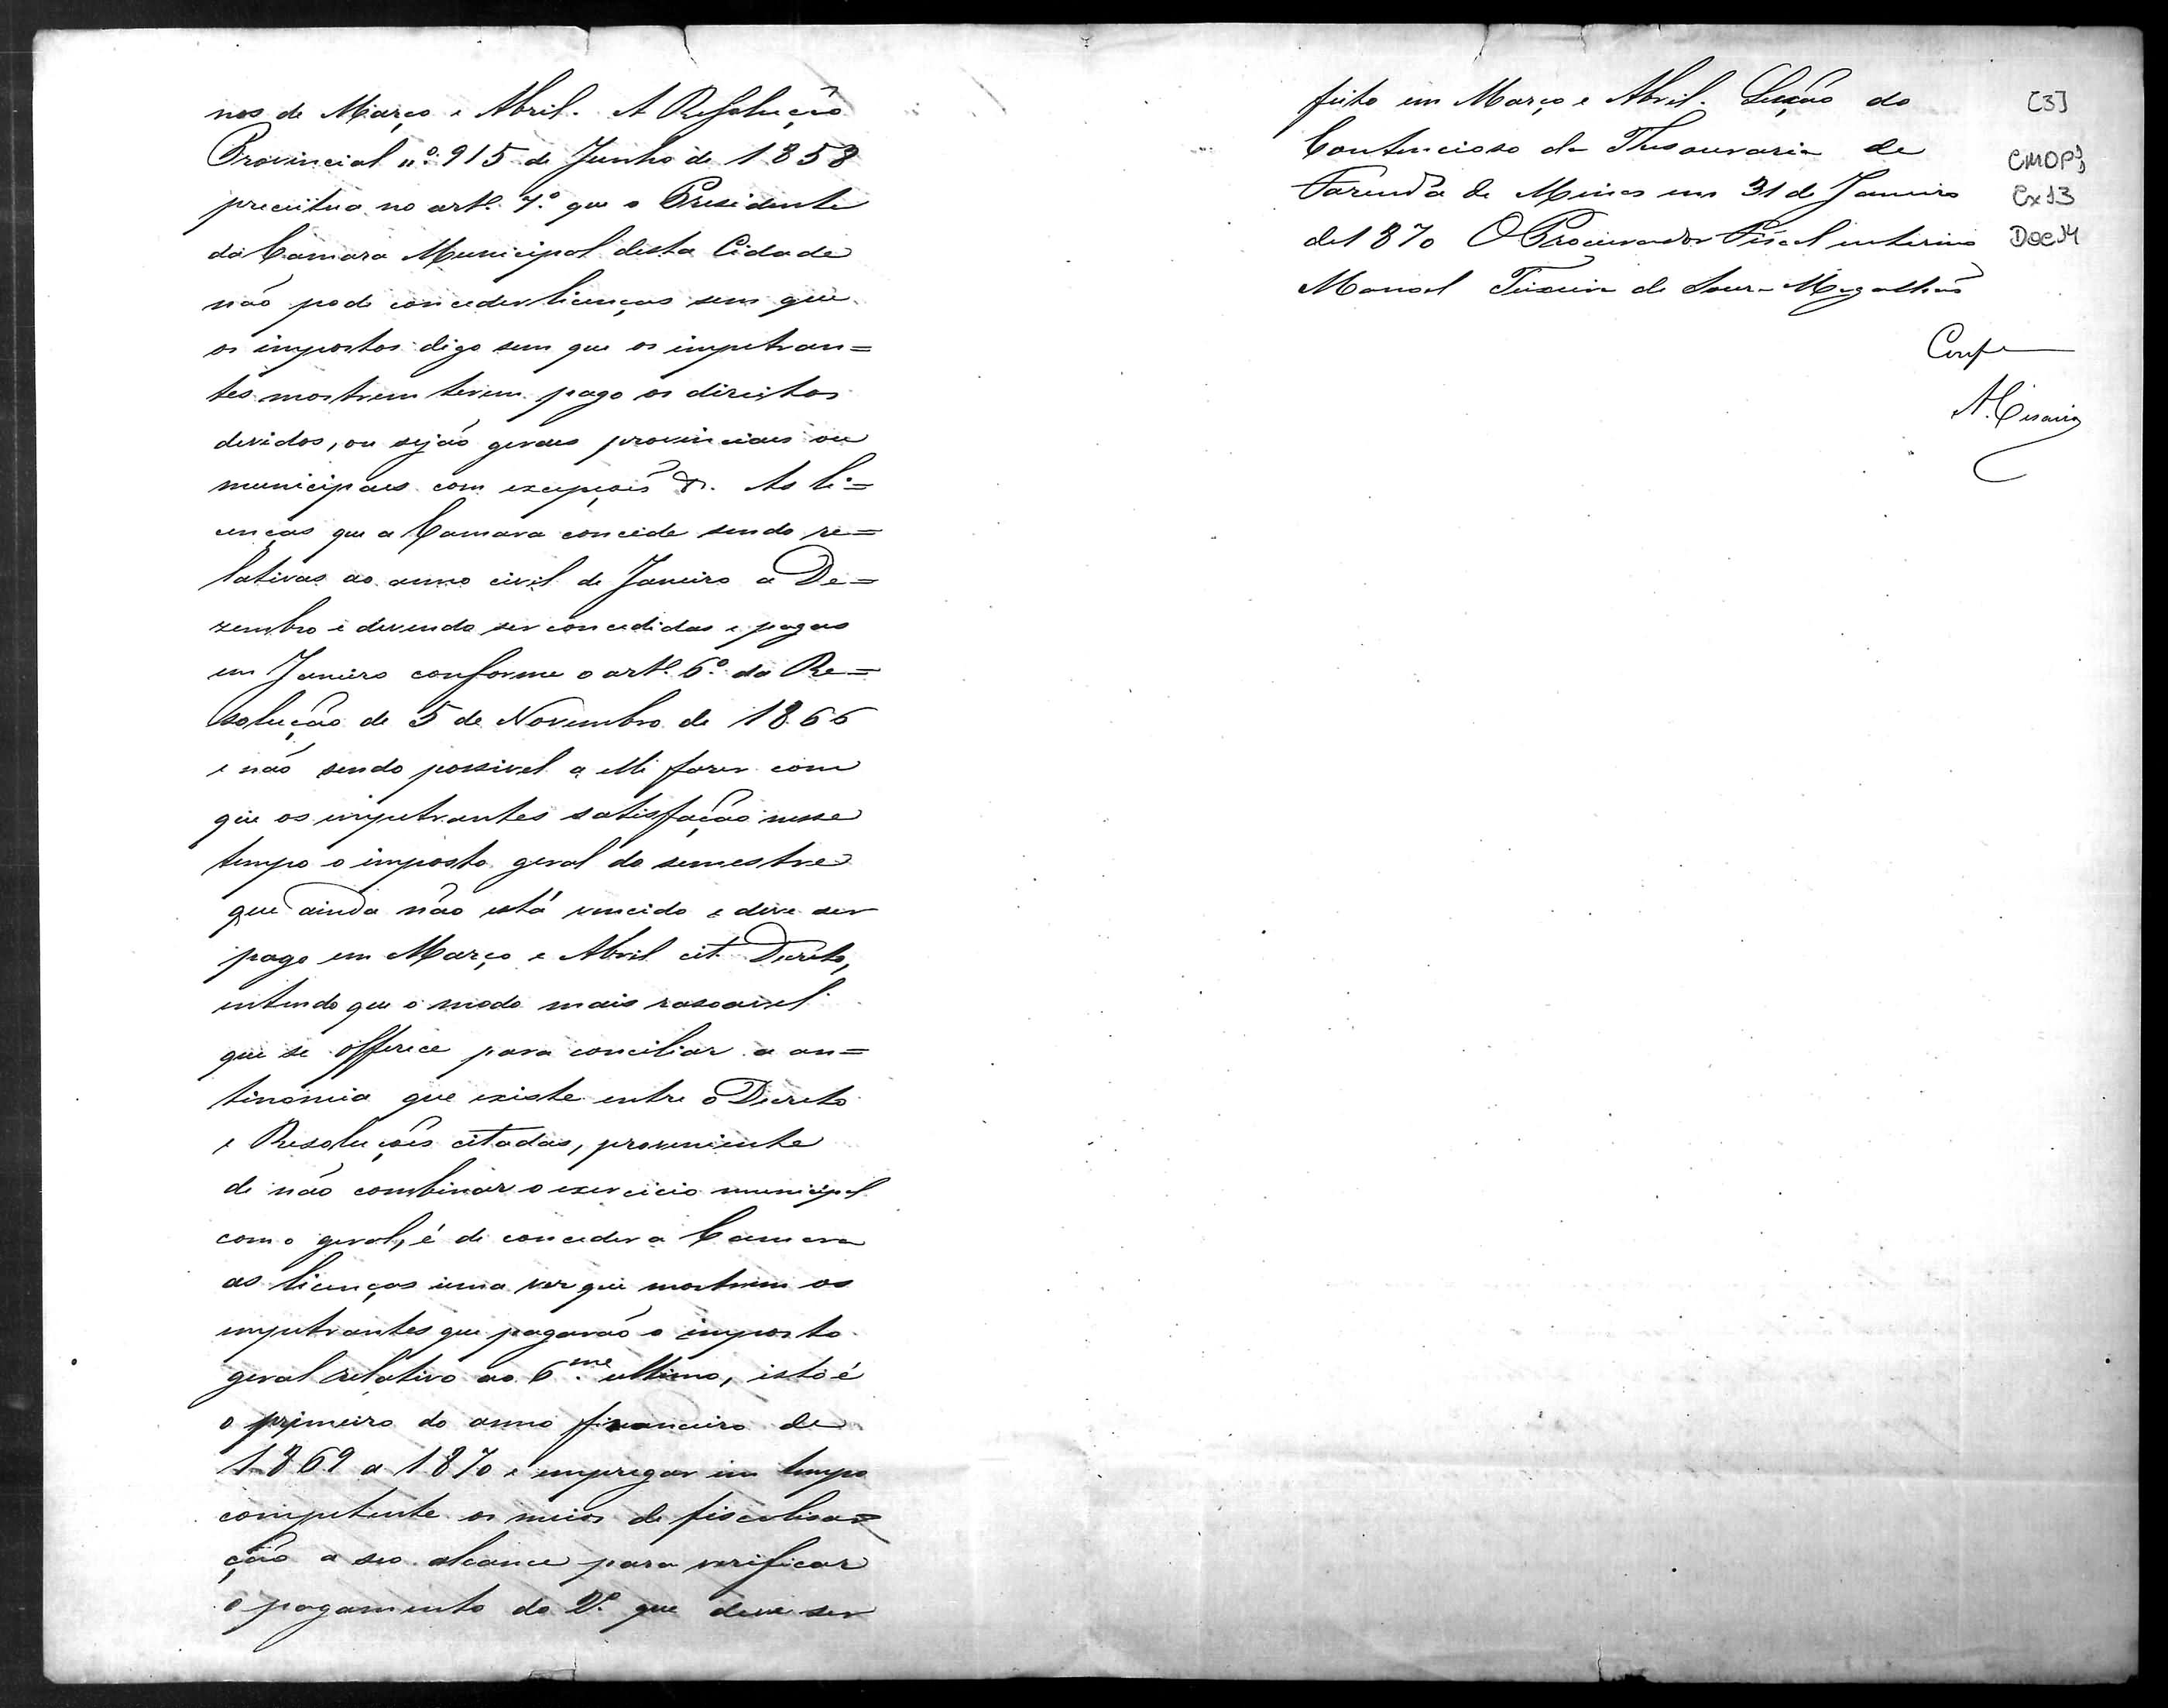 nos de Março e Abril. A Resolução
Provincial nº 915 de Junho de 1858
preceitua no artº 7º que o Presidente
da Camara Municipal desta Cidade
não pode conceder licenças sem que
os impostos digo sem que os impetran=
tes mostrem terem pago os direitos
devidos, ou sejão geraes provinciaes ou
municipaes com excepções &. As li=
cenças que a Camara concede sendo re=
lativas ao anno civil de Janeiro a De=
zembro e devendo ser concedidas e pagas
em Janeiro conforme o artº 6º da Re=
solução de 5 de Novembro de 1866
e não sendo possivel a ella fazer com
que os impetrantes satisfação nesse
tempo o imposto geral do semestre
que ainda não está vencido e deve ser
pago em Março e Abril cit. Decreto,
entendo que o modo mais rasoavel
que se offerece para conciliar a an=
tinomia que existe entre o Decreto
e Resoluções citadas, proveniente
de não combinar o exercicio municipal
com o geral, é de conceder a Camara
as licenças uma vez que mostrem os
impetrantes que pagarão o imposto
geral relativo ao 6.me ultimo, isto é
o primeiro do anno financeiro de
1869 a 1870 e empregar em tempo
competente os meios de fiscalisa=
ção a seo alcance para verificar
o pagamento do 2º que deve ser
feito em Março e Abril. Secção do
Contencioso da Thesouraria de
Fazenda de Minas em 31 de Janeiro
de 1870 O Procurador Fiscal interino
Manoel Teixeira de Souza Magalhães
[3]
CMOP
Cx 13
Doc 14
Confe